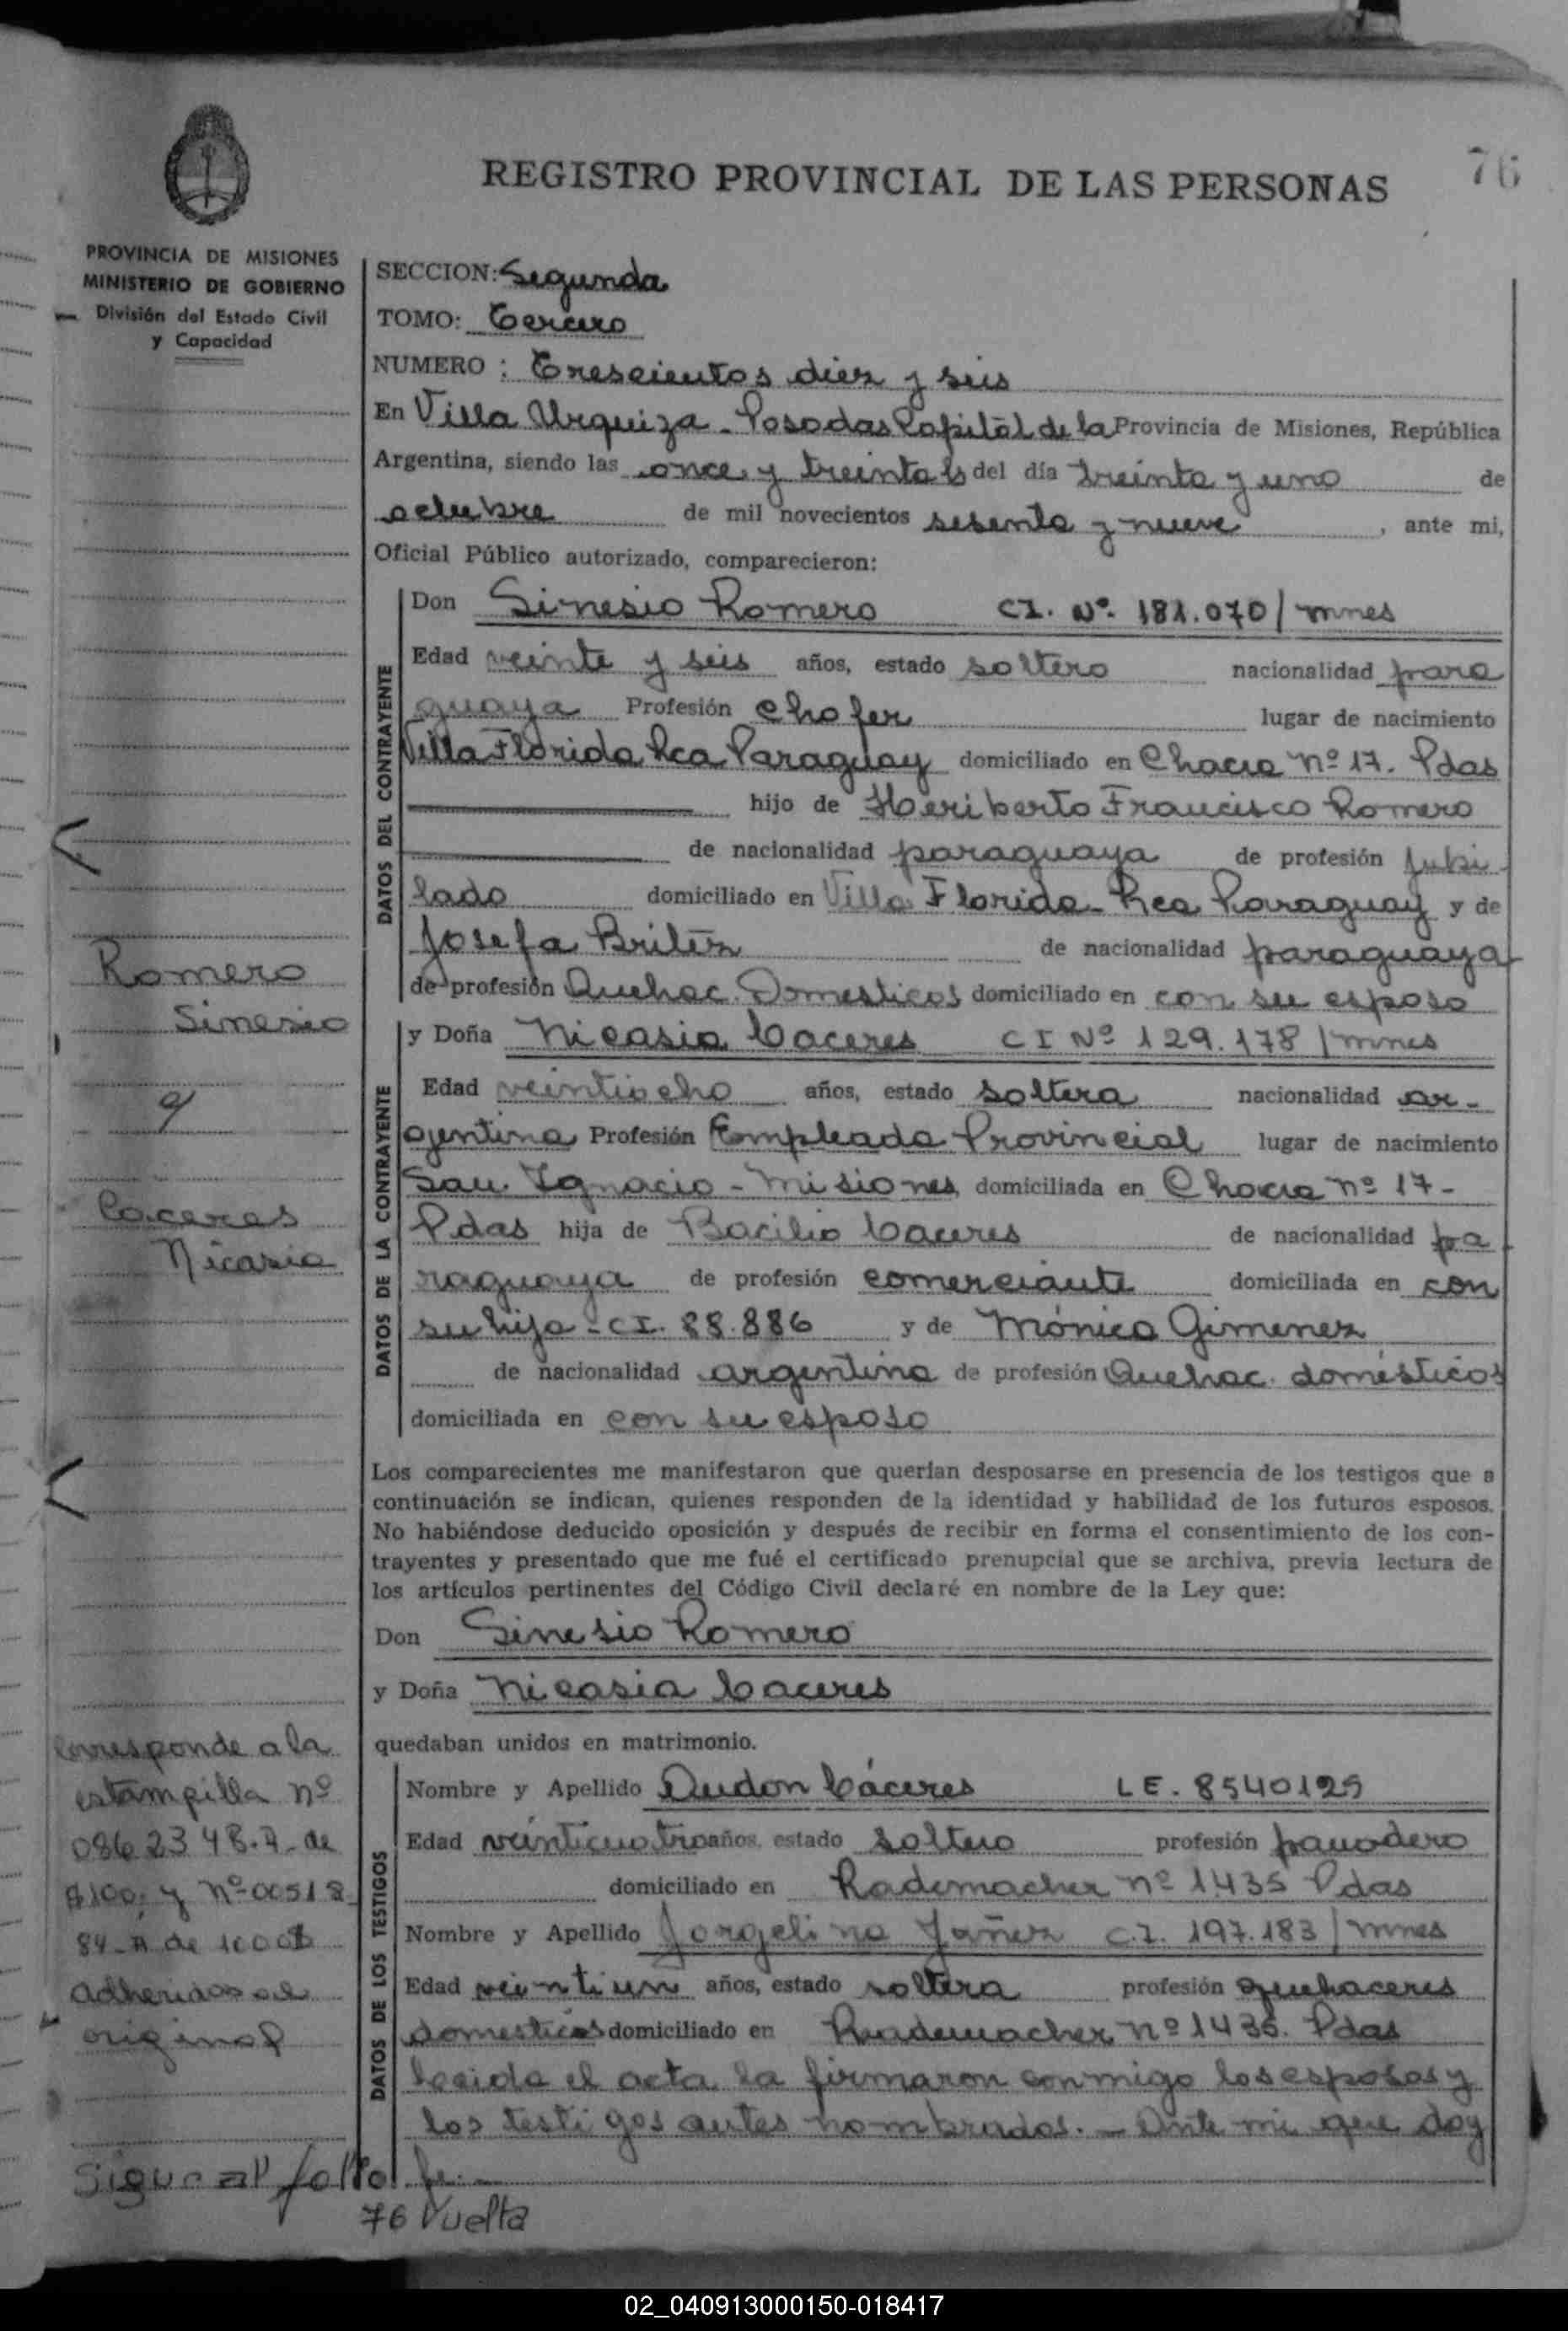 76
REGISTRO PROVINCIAL DE LAS PERSONAS
PROVINCIA DE MISIONES
MINISTERIO DE GOBIERNO
División del Estado Civil
y Capacidad
SECCION: Segunda
TOMO: Tercero
NUMERO : Trescientos diez y seis
En Villa Urquiza - Posadas Capital de la Provincia de Misiones, República
Argentina, siendo las once y treinta hs del día treinta y uno de
octubre de mil novecientos sesenta y nueve, ante mi,
Oficial Público autorizado, comparecieron:
DATOS DEL CONTRAYENTE
Don Sinesio Romero CI. Nº 181.070/mnes
Edad veinte y seis años, estado soltero nacionalidad para
guaya Profesión chofer lugar de nacimiento
Villa Florida Rca Paraguay domiciliado en Chacra nº 17. Pdas
hijo de Heriberto Francisco Romero
de nacionalidad paraguaya de profesión Jubi
lado domiciliado en Villa Florida - Rca Paraguay y de
Josefa Britéz de nacionalidad paraguaya
de profesión Quehac. Domesticos domiciliado en con su esposo
DATOS DE LA CONTRAYENTE
y Doña Nicasia Caceres CI Nº 129.178/mnes
Edad veintiocho años, estado soltera nacionalidad ar-
gentina Profesión Empleada Provincial lugar de nacimiento
San Ignacio - Misiones domiciliada en Chacra nº 17-
Pdas hija de Bacilio Caceres de nacionalidad pa
raguaya de profesión comerciante domiciliada en con
su hija - CI. 88.886 y de Mónica Gimenez
de nacionalidad argentina de profesión Quehac. domésticos
domiciliada en con su esposo
Los comparecientes me manifestaron que querían desposarse en presencia de los testigos que a
continuación se indican, quienes responden de la identidad y habilidad de los futuros esposos.
No habiéndose deducido oposición y después de recibir en forma el consentimiento de los con-
trayentes y presentado que me fué el certificado prenupcial que se archiva, previa lectura de
los artículos pertinentes del Código Civil declaré en nombre de la Ley que:
Don Sinesio Romero
y Doña Nicasia Caceres
quedaban unidos en matrimonio.
DATOS DE LOS TESTIGOS
Nombre y Apellido Audon Cáceres LE. 8540129
Edad veinticuatro años, estado soltero profesión panadero
domiciliado en Rademacher nº 1435 Pdas
Nombre y Apellido Jorgelina Yañez C.I. 197.183/mnes
Edad veintiun años, estado soltera profesión quehaceres
domesticos domiciliado en Rademacher nº 1435. Pdas
Leeida el acta la firmaron conmigo los esposos y
los testigos antes nombrados. - Ante mi que doy
fe. -
Romero
Sinesio
c/
Caceres
Nicasia
Corresponde a la
estampilla nº
0862348.A. de
$100; y Nº 00518
84-A de 1000$
adheridas al
original
Sigue al folio
76 Vuelta
02_040913000150-018417